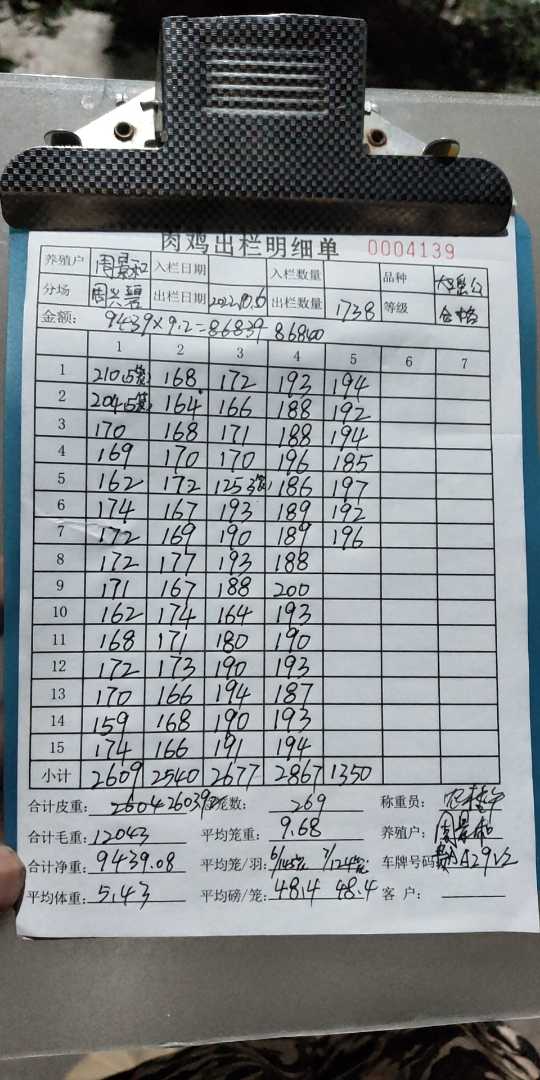 肉鸡出栏明细单 0004139
养殖户 周景和 入栏日期 入栏数量 品种
分场 周兴碧 出栏日期 2022.10.6 出栏数量 1738 等级 合格
金额: 9439×9.2=86839 86840
1 2 3 4 5 6 7
1 210(5笼) 168 172 193 194
2 204(5笼) 164 166 188 192
3 170 168 171 188 194
4 169 170 170 196 185
5 162 172 125(3笼) 186 197
6 174 167 193 189 192
7 172 169 190 189 196
8 172 177 193 188
9 171 167 188 200
10 162 174 164 193
11 168 171 180 190
12 172 173 190 193
13 170 166 194 187
14 159 168 190 193
15 174 166 191 194
小计 2609 2540 2677 2867 1350
合计皮重: 2604 2603.92 笼数: 269 称重员:
合计毛重: 12043 平均笼重: 9.68 养殖户: 周景和
合计净重: 9439.08 平均笼/羽: 车牌号码
平均体重: 5.43 平均磅/笼: 48.4 48.4 客户: